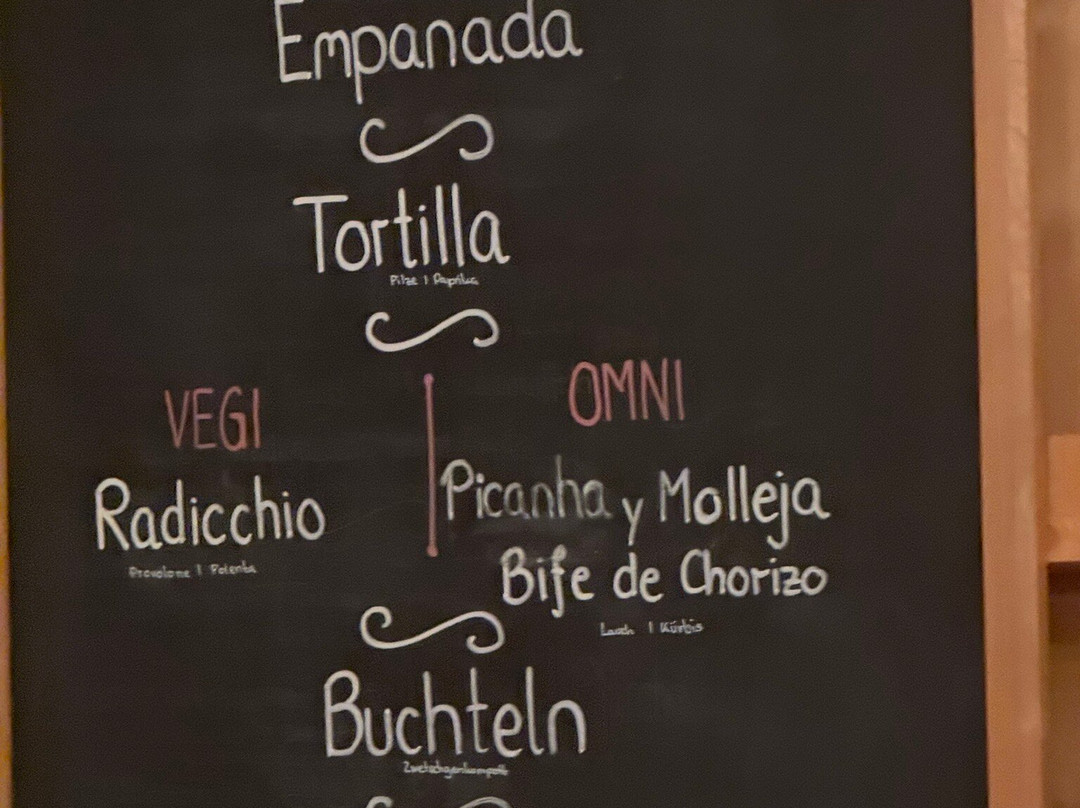 Empanada
Tortilla
Pilze | Paprika
VEGI
Radicchio
Provolone | Polenta
OMNI
Picanha y Molleja
Bife de Chorizo
Lauch | Kürbis
Buchteln
Zwetschgenkompott